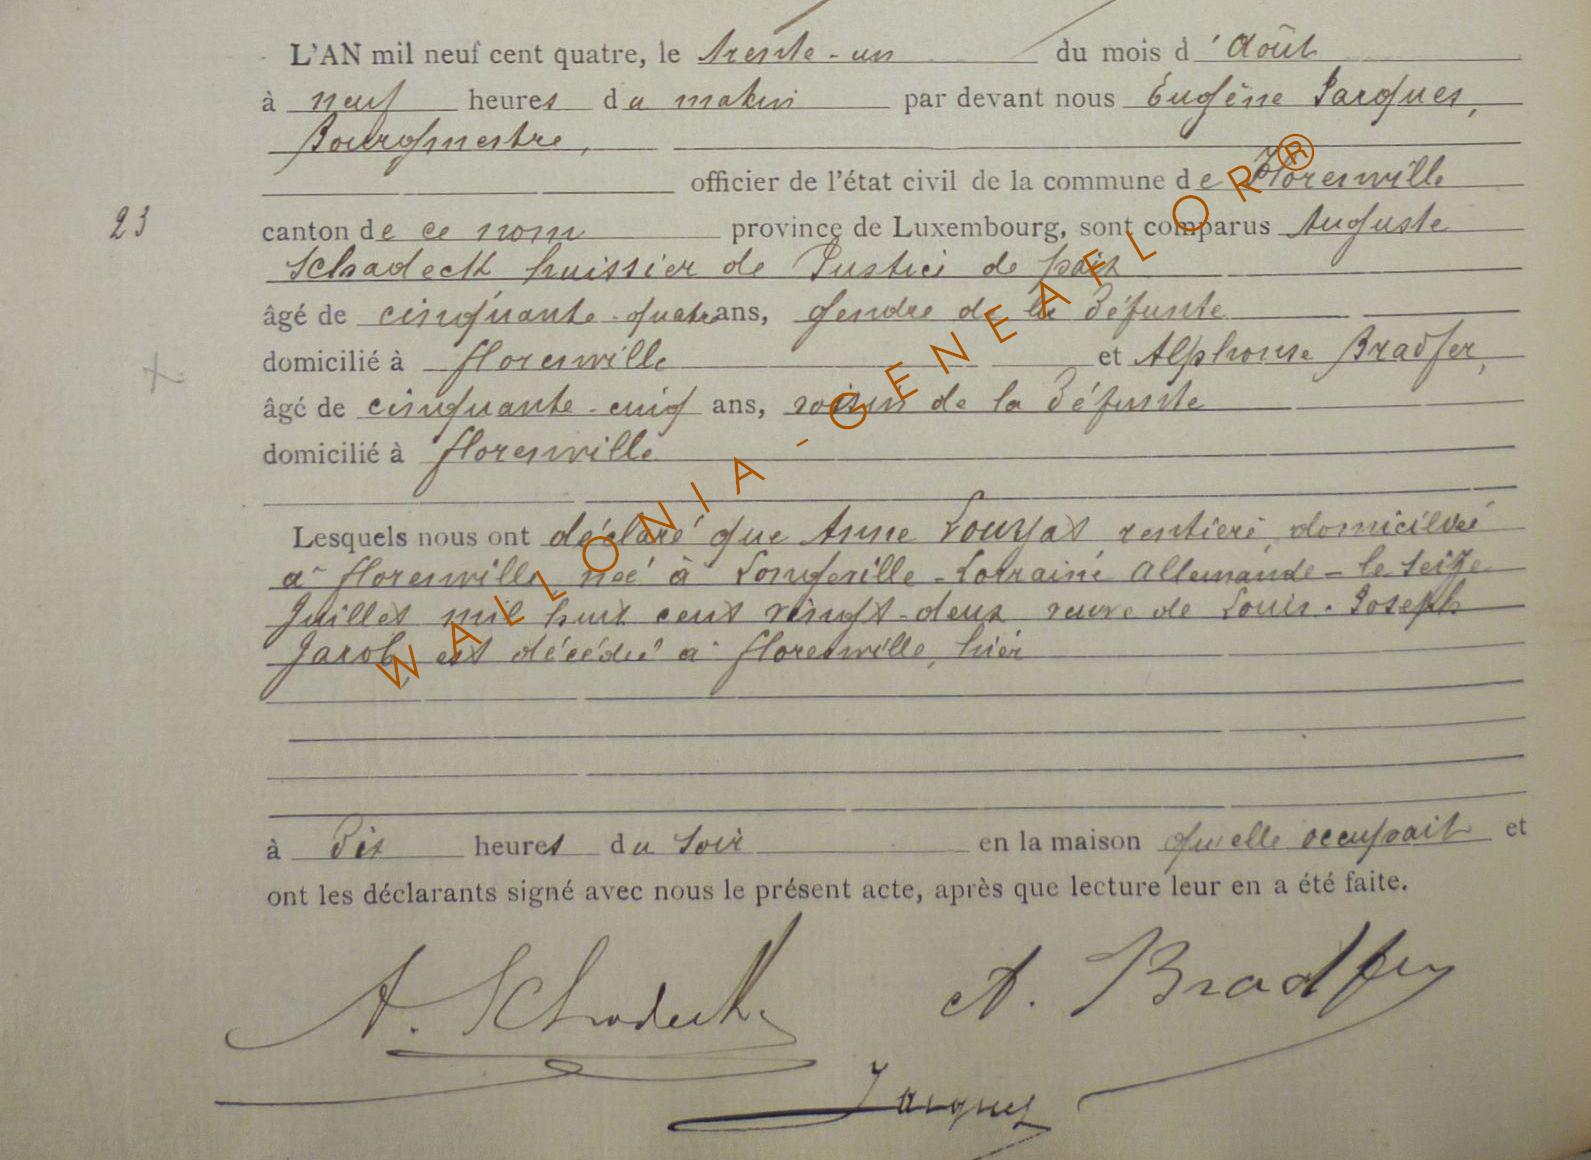 L'AN mil neuf cent quatre, le trente-un du mois d'Août
à neuf heures du matin par devant nous Eugène Jacques,
Bourgmestre,
officier de l'état civil de la commune de Florenville
23 canton de ce nom province de Luxembourg, sont comparus Auguste
Schadeck huissier de Justice de paix
âgé de cinquante-quatre ans, gendre de la défunte
domicilié à Florenville et Alphonse Bradfer,
âgé de cinquante-cinq ans, voisin de la défunte
domicilié à Florenville
Lesquels nous ont déclaré que Anne Louyat rentière, domiciliée
à Florenville née à Longeville-Lorraine Allemande-le seize
Juillet mil huit cent vingt-deux veuve de Louis-Joseph
Jacob, est décédée à Florenville, hier
à dix heures du soir en la maison qu'elle occupait et
ont les déclarants signé avec nous le présent acte, après que lecture leur en a été faite.
A. Schadeck A. Bradfer
Jacques
WALLONIA-GENEAFLOR®